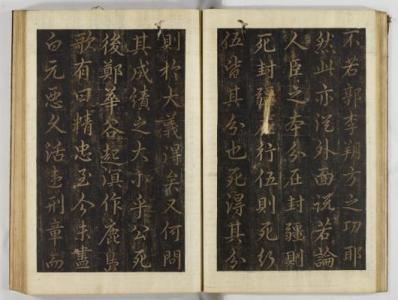 不若郭李朔方之功耶
然此亦從外面説若論
人臣之本分在封疆則
死封疆行伍則死行
伍皆其分也死得其分
則於大義得矣又何問
其成績之大小乎公死
後鄭華谷起滇作鹿島
歌有曰精忠至今未盡
白元惡久活刑章而